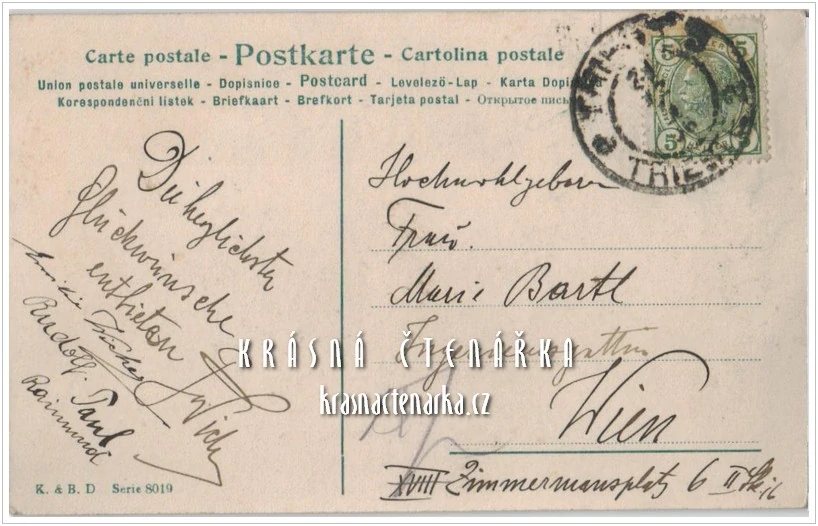 Carte postale - Postkarte - Cartolina postale
Union postale universelle - Dopisnice - Postcard - Levelező-Lap - Karta
Korespondenční listek - Briefkaart - Brefkort - Tarjeta postal - Открытое
5 5
5 5
TRIE
Die herzlichsten
Glückwünsche
entbieten
Rudolf. Paul
Raimund
Hochwohlgeboren
Frau
Marie Bartl
Ingenieursgattin
Wien
XVIII Zimmermannsplatz 6 II
KRÁSNÁ ČTENÁŘKA
krasnactenarka.cz
K. & B. D Serie 8019